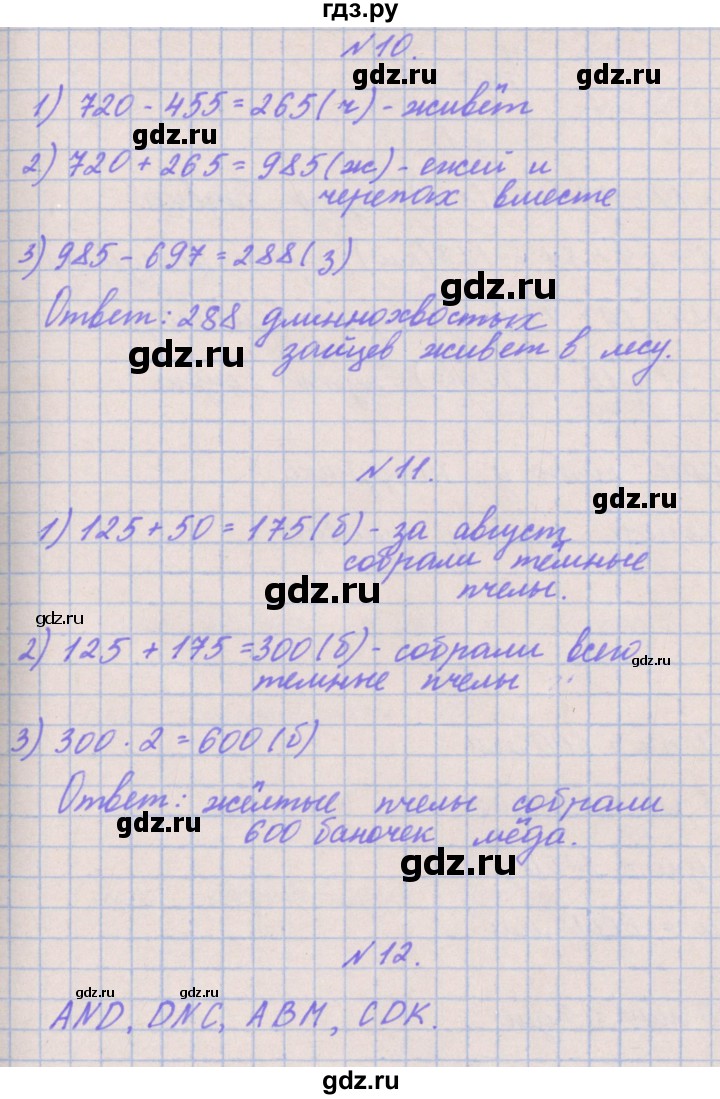 гдз.ру
№10.
gdz.ru
gdz.ru
1) 720 - 455 = 265 (ч) - живёт
gdz.ru
2) 720 + 265 = 985 (ж) - ежей и
черепах вместе
3) 985 - 697 = 288 (з)
gdz.ru
Ответ: 288 длиннохвостых
gdz.ru
зайцев живет в лесу.
№11.
gdz.ru
1) 125 + 50 = 175 (б) - за август
собрали тёмные
gdz.ru
пчелы.
gdz.ru
2) 125 + 175 = 300 (б) - собрали всего
gdz.ru
темные пчелы
3) 300 · 2 = 600 (б)
Ответ: жёлтые пчелы собрали
gdz.ru
600 баночек мёда.
gdz.ru
№12.
gdz.ru
gdz.ru
AND, DNC, ABM, CDK.
gdz.ru